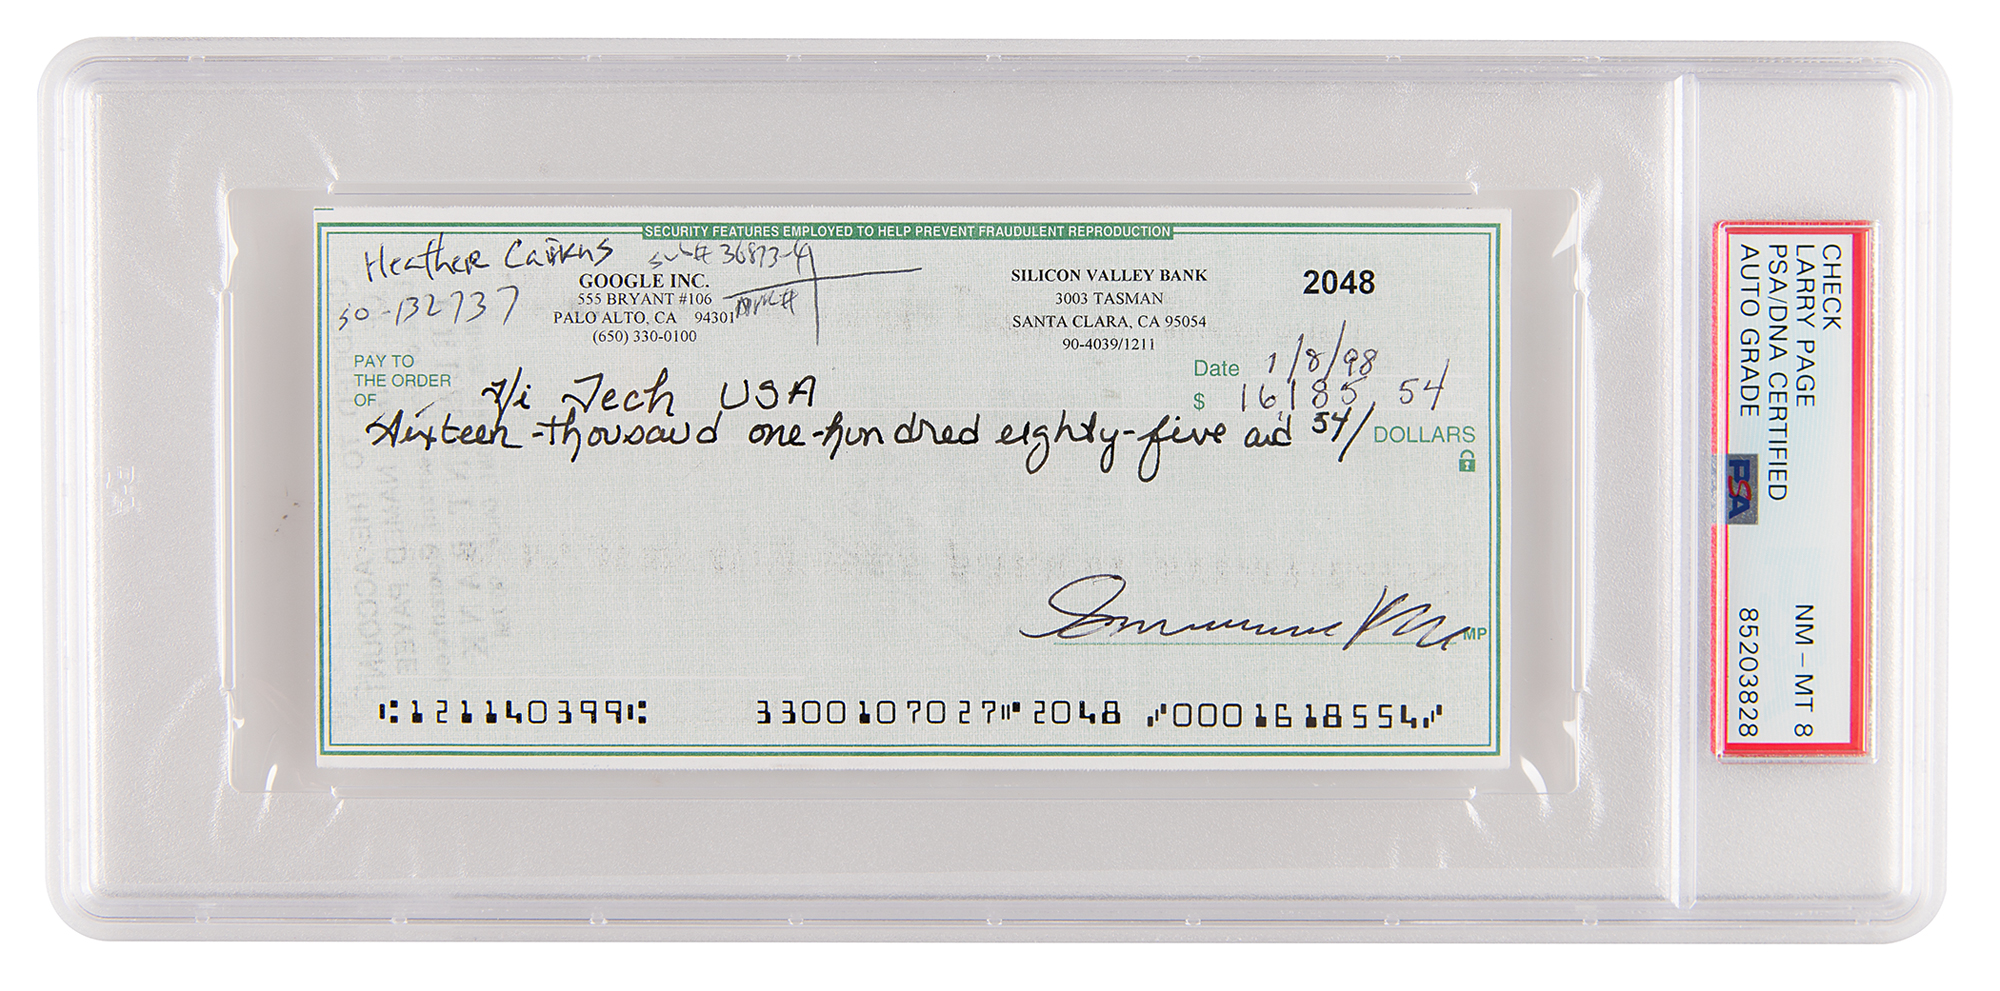 SECURITY FEATURES EMPLOYED TO HELP PREVENT FRAUDULENT REPRODUCTION
Heather Cairns
36873-9
so-132737
GOOGLE INC.
555 BRYANT #106
PALO ALTO, CA 94301
(650) 330-0100
SILICON VALLEY BANK
3003 TASMAN
SANTA CLARA, CA 95054
90-4039/1211
2048
PAY TO
THE ORDER
OF
Hi Tech USA
Date 1/8/98
$ 16,185.54
Sixteen-thousand one-hundred eighty-five and 54/ DOLLARS
MP
⑆121140399⑆ 3300107027⑈ 2048 ⑇0001618554⑇
CHECK
LARRY PAGE
PSA/DNA CERTIFIED
AUTO GRADE
NM-MT 8
85203828
PSA